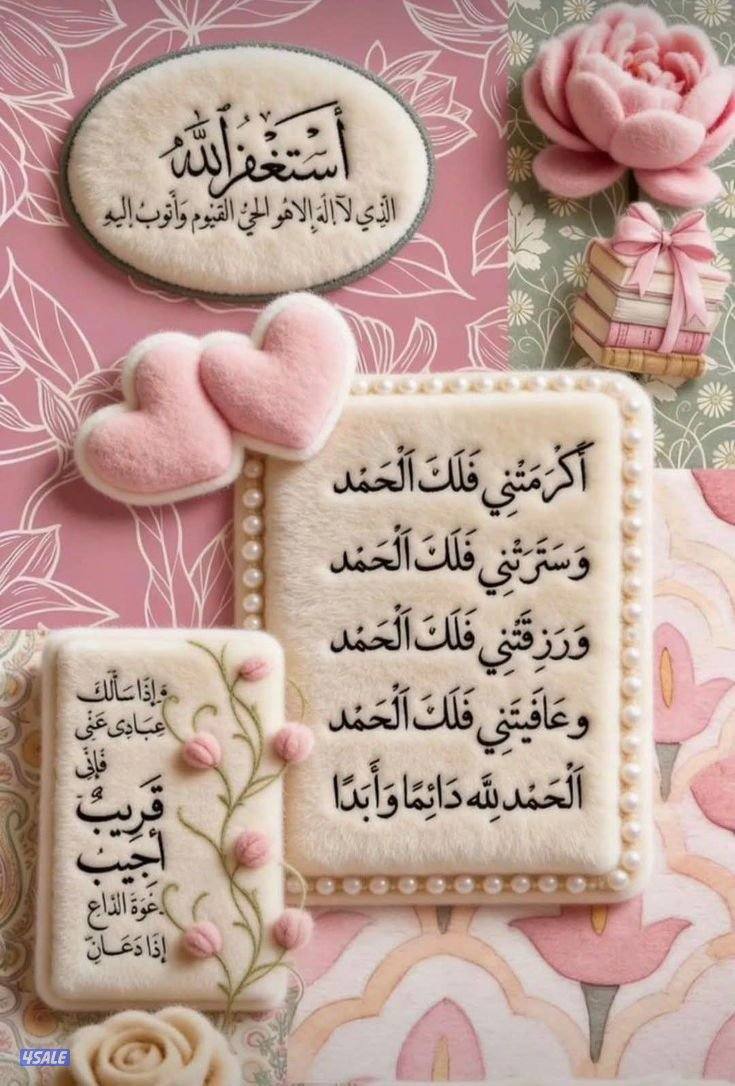 أَسْتَغْفِرُ ٱللَّٰهَ
الَّذِي لَا إِلَٰهَ إِلَّا هُوَ الْحَيُّ الْقَيُّومُ وَأَتُوبُ إِلَيْهِ
أَكْرَمَتْنِي فَلَكَ اَلْحَمْد
وَسَتَرَتْنِي فَلَكَ اَلْحَمْد
وَرَزِقَتْنِي فَلَكَ اَلْحَمْد
وعَافَيتَنِي فَلَكَ اَلْحَمْد
اَلْحَمْد لِلَّه دَائِمًا وَأَبَدًا
وَإِذَا سَأَلَكَ
عِبَادِى عَنِّى
فَإِنِّي
قَرِيبٌ
أُجِيبُ
دَعْوَةَ الدَّاعِ
إِذَا دَعَانِ
4SALE